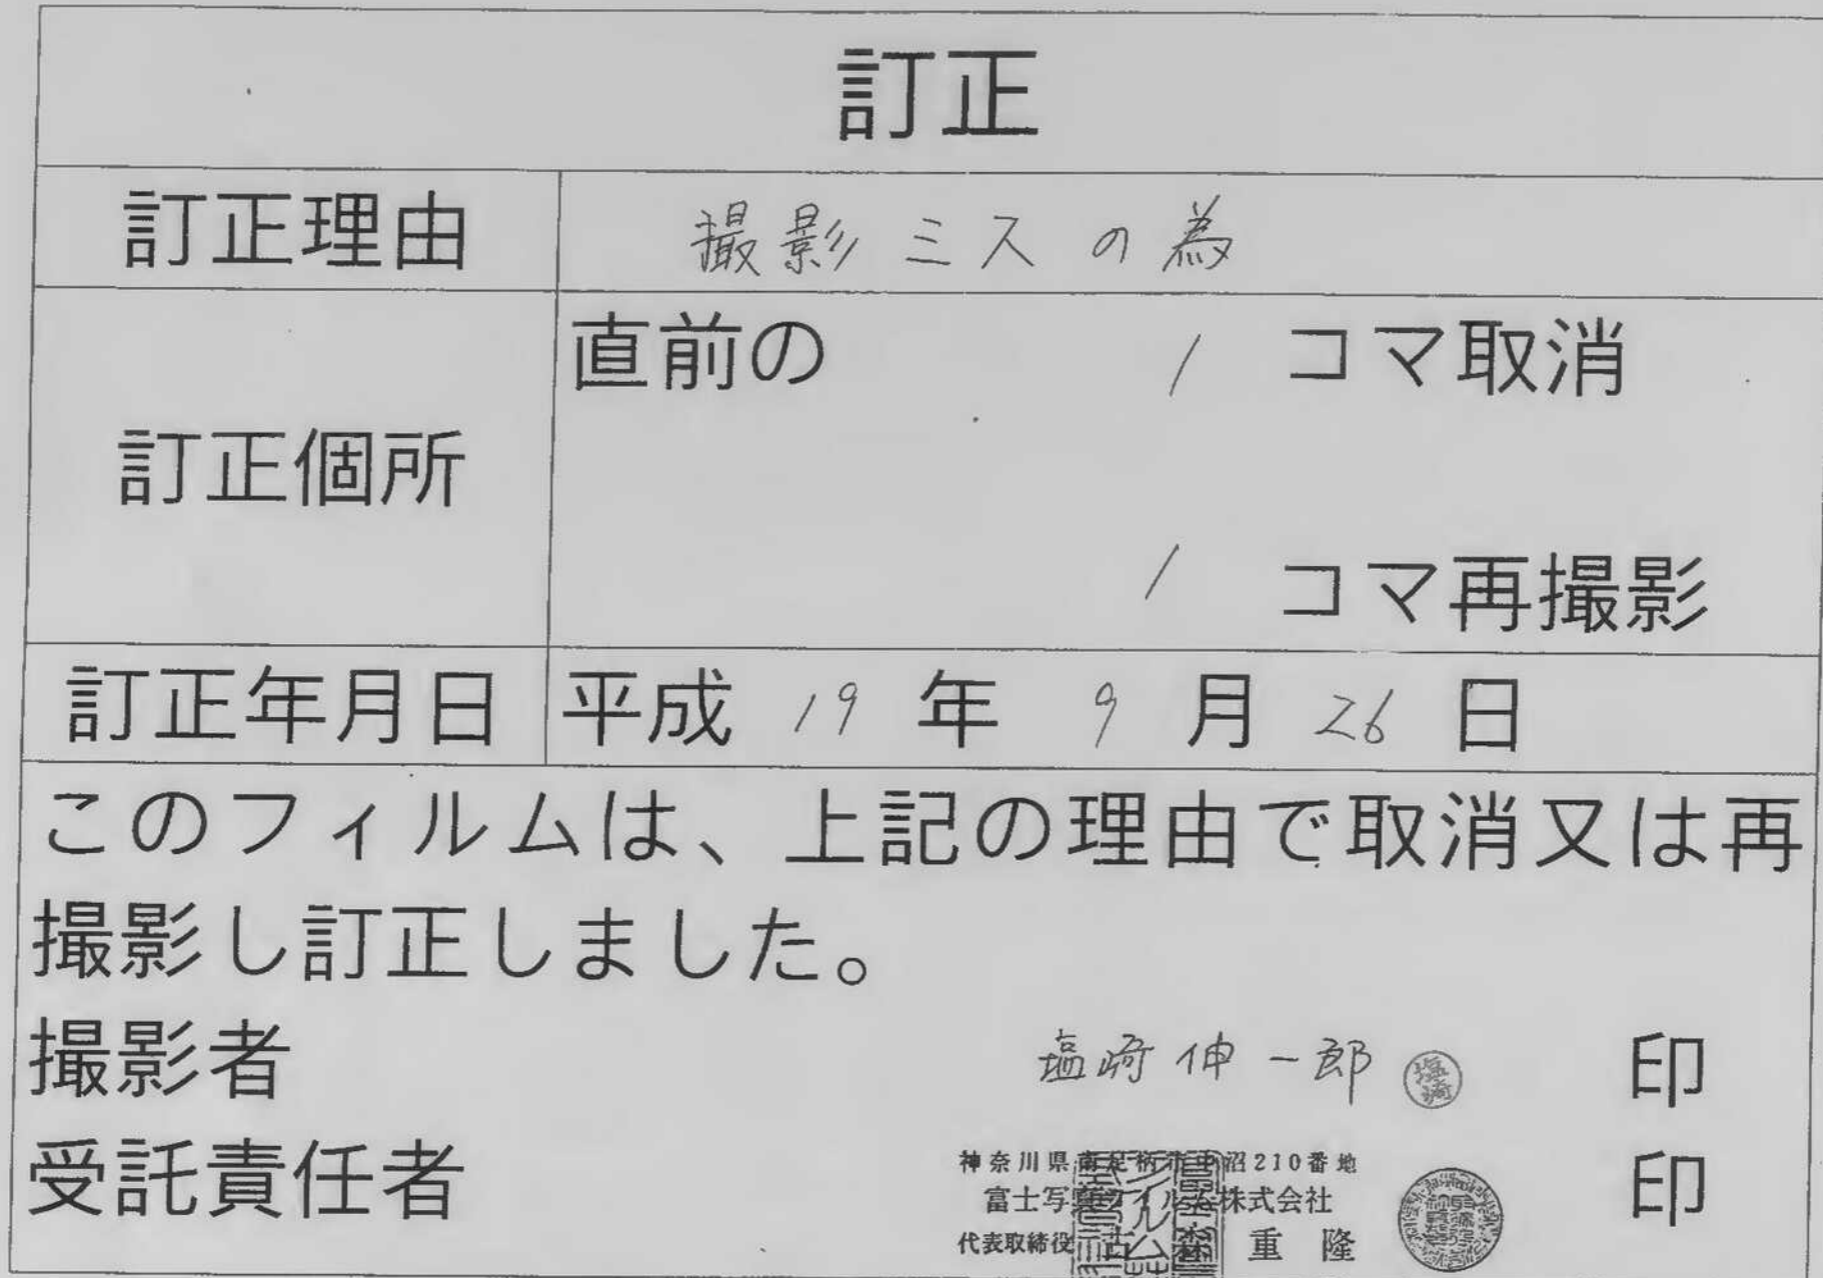 訂正
訂正理由 撮影ミスの為
訂正個所
直前の 1 コマ取消
1 コマ再撮影
訂正年月日 平成 19 年 9 月 26 日
このフィルムは、上記の理由で取消又は再
撮影し訂正しました。
撮影者 塩崎伸一郎 塩崎 印
受託責任者 印
神奈川県南足柄市中沼210番地
富士写真フイルム株式会社
代表取締役 古 重隆